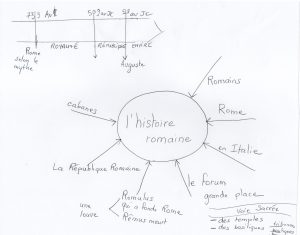 753 Av JC 509 av JC 27 av JC
ROYAUTÉ RÉPUBLIQUE EMPIRE
Rome
selon le
mythe
Auguste
Romains
cabanes
l'histoire
romaine
Rome
en Italie
La République Romaine
le forum
grande place
une
louve
Romulus
qui a fondé Rome
Rémus meurt
Voie Sacrée
- des temples
- des basiliques